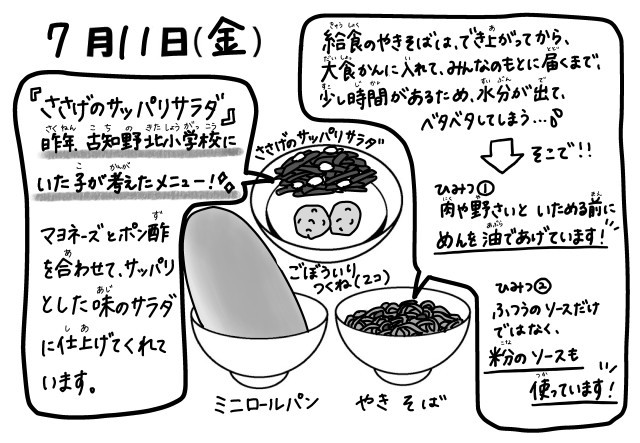 7月11日(金)
『ささげのサッパリサラダ』
昨年、古知野北小学校に
いた子が考えたメニュー！
マヨネーズとポン酢
を合わせて、サッパリ
とした味のサラダ
に仕上げてくれて
います。
ささげのサッパリサラダ
ごぼういり
つくね(2コ)
ミニロールパン
やきそば
給食のやきそばは、でき上がってから、
大食かんに入れて、みんなのもとに届くまで、
少し時間があるため、水分が出て、
ベタベタしてしまう…
そこで!!
ひみつ①
肉や野さいといためる前に
めんを油であげています！
ひみつ②
ふつうのソースだけ
ではなく、
粉のソースも
使っています！